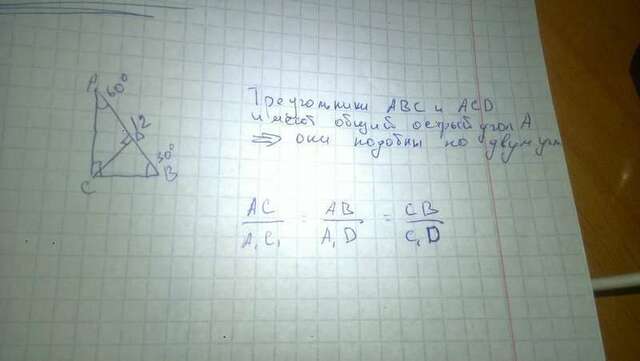 A
60°
12
30°
C
B
Треугольники ABC и ACD
имеют общий острый угол A
⇒ они подобны по двум
AC / A₁C₁ = AB / A₁D = CB / C₁D